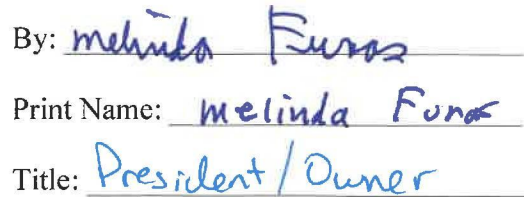 By: melinda
Print Name: melinda
Title: President/Owner